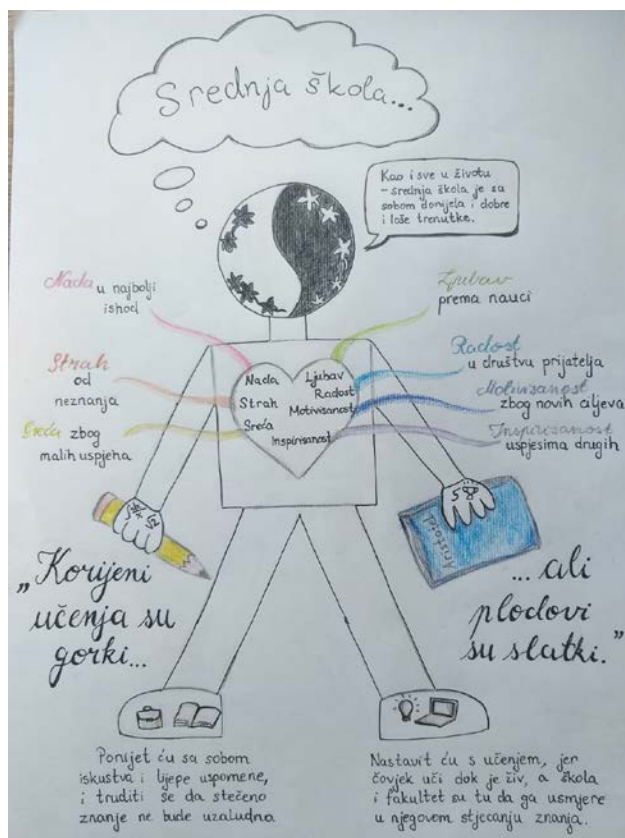 Srednja škola...
Kao i sve u životu
- srednja škola je sa
sobom donijela i dobre
i loše trenutke.
Nada u najbolji
ishod
Strah
od
neznanja
Sreća zbog
malih uspjeha
Ljubav
prema nauci
Radost
u društvu prijatelja
Motivisanost
zbog novih ciljeva
Inspirisanost
uspjesima drugih
Nada
Strah
Sreća
Ljubav
Radost
Motivisanost
Inspirisanost
5
Aristotel
„Korijeni
učenja su
gorki...
...ali
plodovi
su slatki.”
Ponijet ću sa sobom
iskustva i lijepe uspomene,
i truditi se da stečeno
znanje ne bude uzaludno.
Nastavit ću s učenjem, jer
čovjek uči dok je živ, a škola
i fakultet su tu da ga usmjere
u njegovom stjecanju znanja.